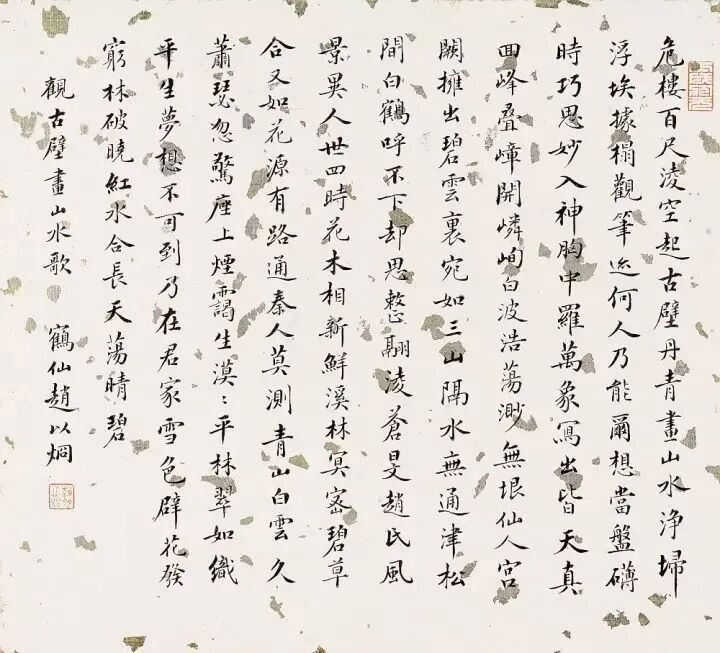 危樓百尺淩空起古壁丹青畫山水浄埽
浮埃據榻觀筆迹何人乃能爾想當盤礴
時巧思妙入神胸中羅萬象寫出皆天真
回峰叠嶂開嶙峋白波浩蕩渺無垠仙人宮
闕擁出碧雲裏宛如三山隔水無通津松
間白鶴呼不下却思整翮淩蒼旻趙氏風
景異人世四時花木相新鮮溪林冥密碧草
合又如花源有路通秦人莫測青山白雲久
蕭瑟忽驚座上煙靄生漠〻平林翠如織
平生夢想不可到乃在君家雪色辟花發
窮林破曉紅水合長天蕩晴碧
觀古壁畫山水歌 鶴仙趙以炯